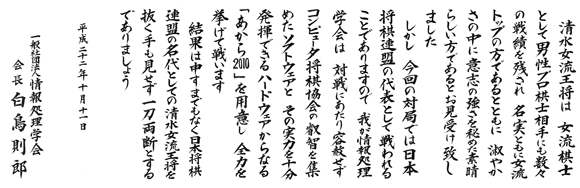 清水女流王将は 女流棋士
として男性プロ棋士相手にも数々
の戦績を残され 名実ともに女流
トップの方であるとともに 淑やか
さの中に意志の強さを秘めた素晴
らしい方であるとお見受け致し
ました
しかし 今回の対局では日本
将棋連盟の代表として戦われる
ことでありますので 我が情報処理
学会は 対戦にあたり容赦せず
コンピュータ将棋協会の叡智を集
めたソフトウェアと その実力を十分
発揮できるハードウェアからなる
「あから2010」を用意し 全力を
挙げて戦います
結果は申すまでもなく日本将棋
連盟の名代としての清水女流王将を
抜く手も見せず一刀両断とする
でありましょう
平成二十二年十月十一日
一般社団法人情報処理学会
会長 白鳥則郎